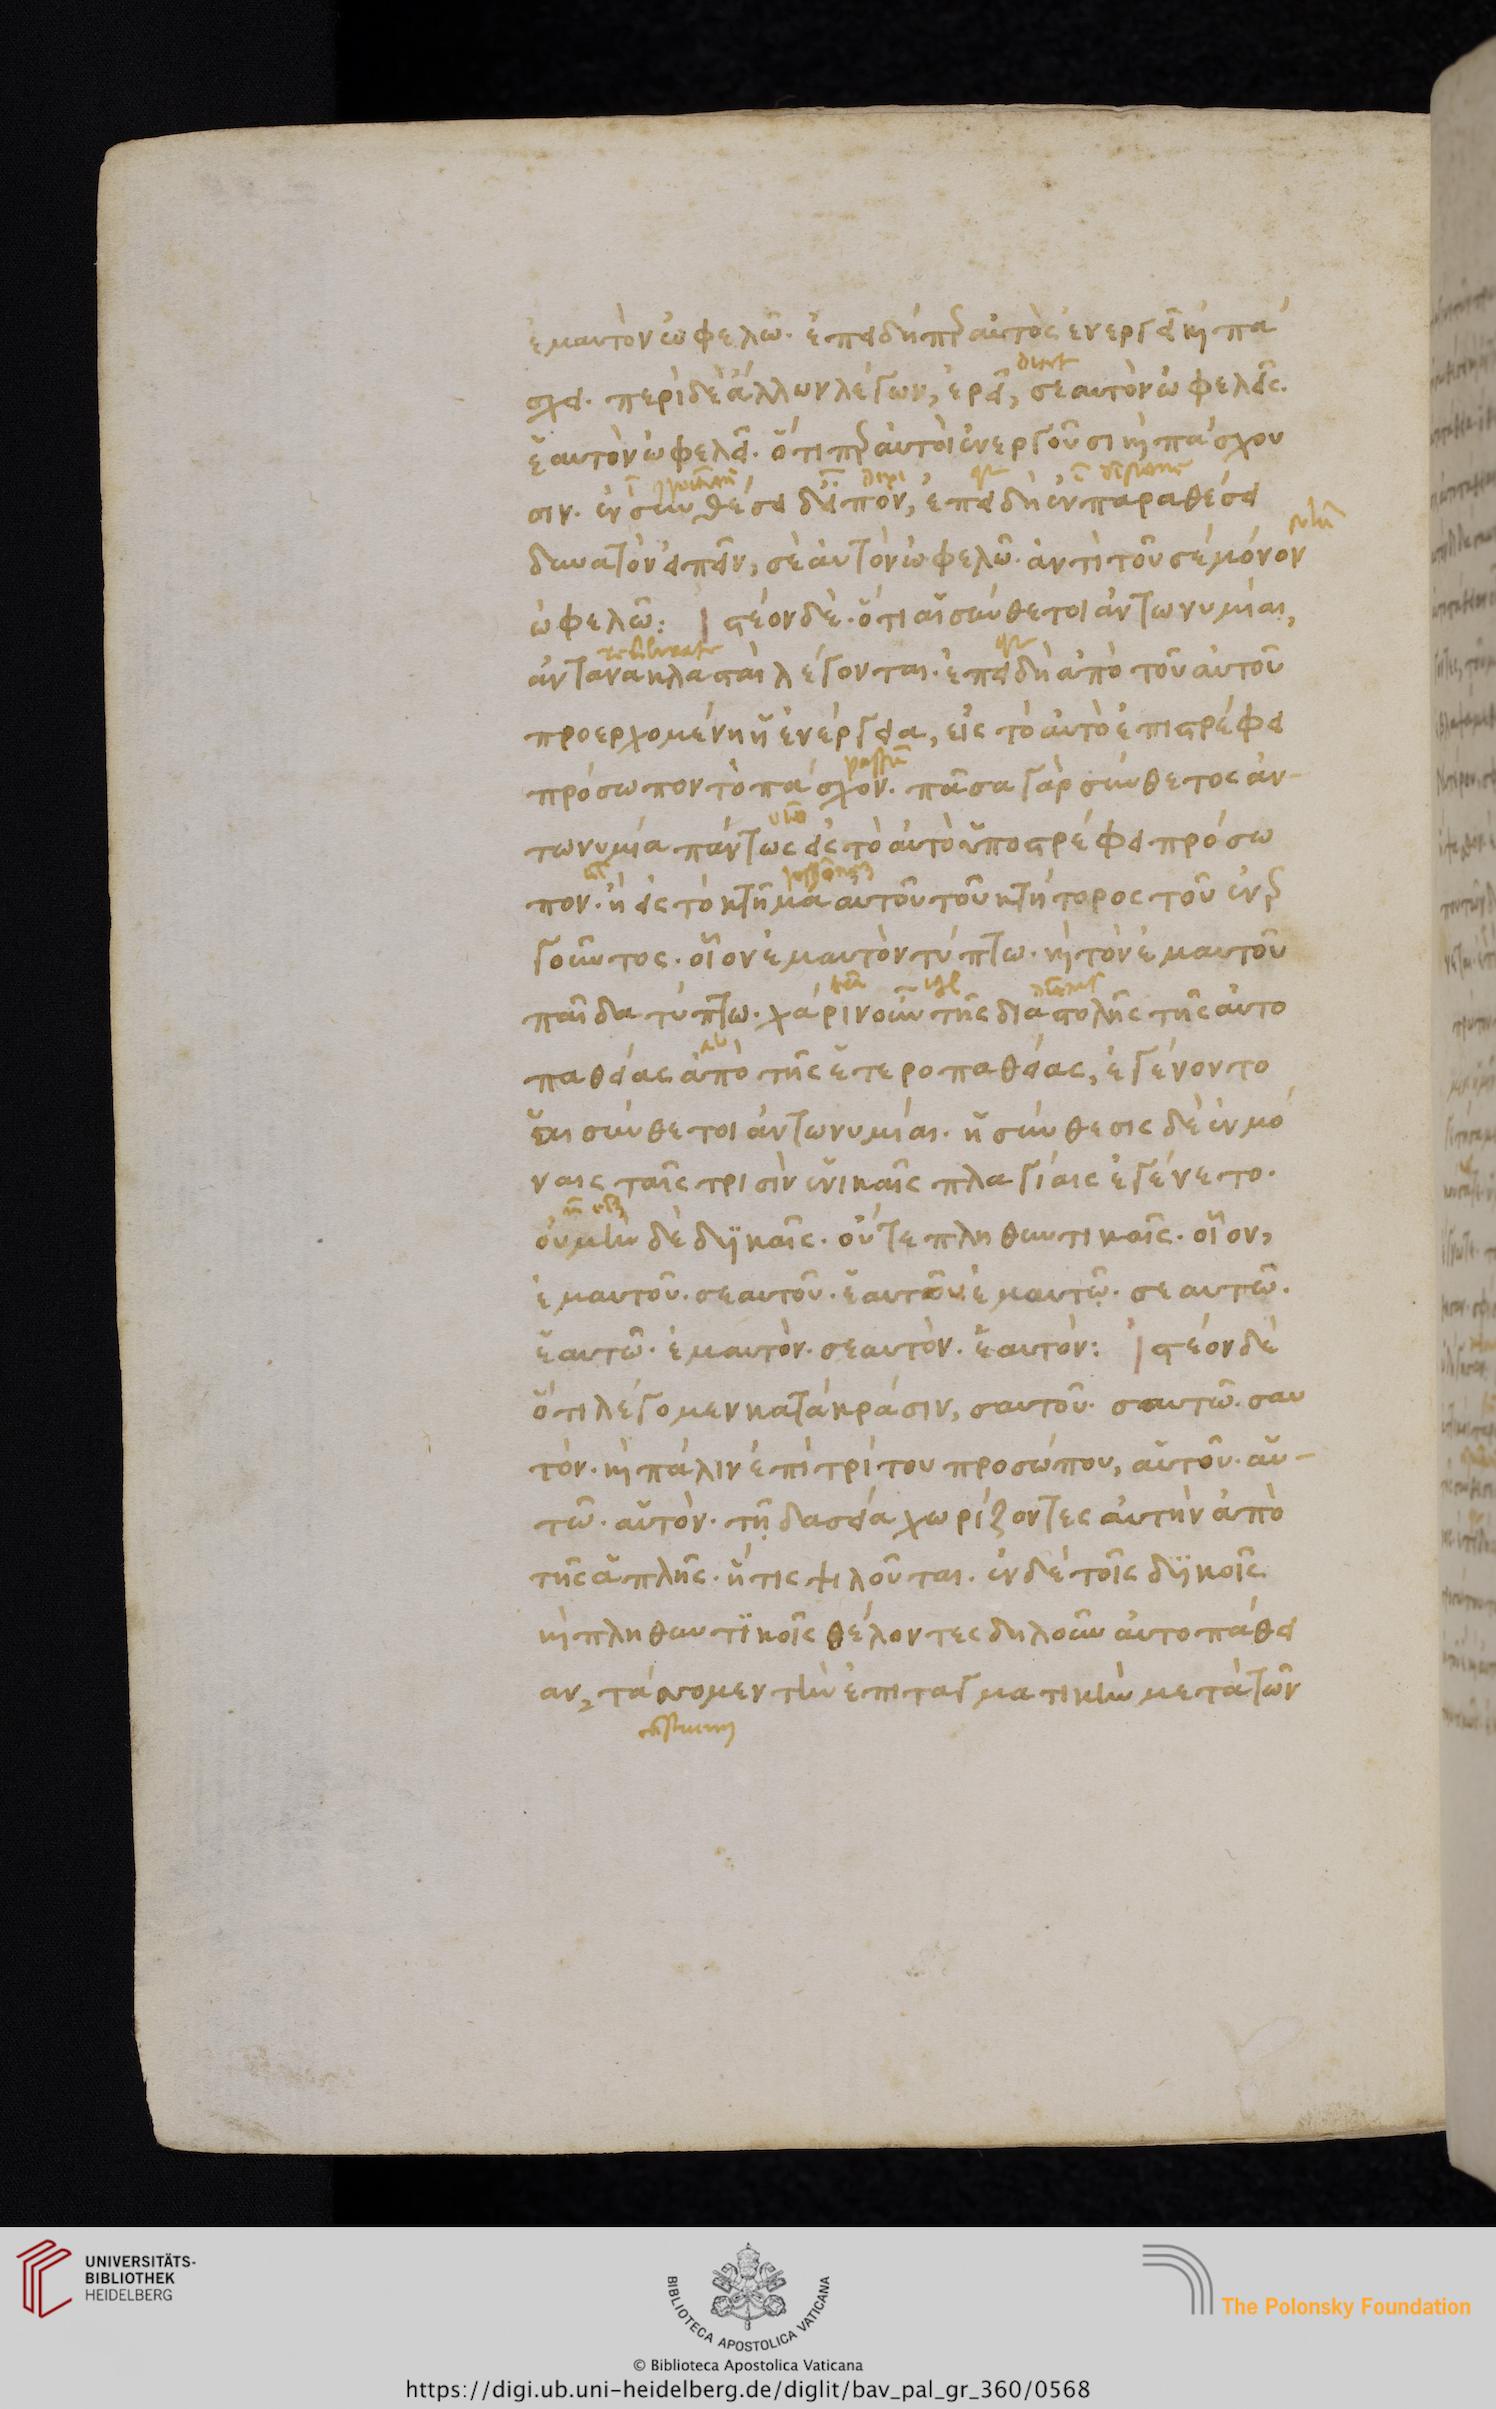 ἐμαυτὸν ὠφελῶ. ἐπειδήπερ αὐτὸς ἐνεργεῖ καὶ πά
σχει. περὶ δὲ ἄλλων λέγων, ἐρεῖ, σεαυτὸν ὠφελεῖς.
ἑαυτὸν ὠφελεῖ. ὅτι περ αὐτοὶ ἐνεργοῦσι καὶ πάσχου
σιν. ἐν συνθέσει δὲ εἶπον, ἐπειδὴ ἐν παραθέσει
δυνατὸν εἰπεῖν, σὲ αὐτὸν ὠφελῶ. ἀντὶ τοῦ σέ μόνον
ὠφελῶ: ἰστέον δὲ. ὅτι αἱ σύνθετοι ἀντωνυμίαι,
ἀντανακλασταὶ λέγονται. ἐπειδὴ ἀπὸ τοῦ αὐτοῦ
προερχομένη ἡ ἐνέργεια, εἰς τὸ αὐτὸ ἐπιστρέφει
πρόσωπον τὸ πάσχον. πᾶσα γὰρ σύνθετος ἀν-
τωνυμία πάντως εἰς τὸ αὐτὸ ὑποστρέφει πρόσω
πον. ἢ εἰς τὸ κτῆμα αὐτοῦ τοῦ κτήτορος τοῦ ἐνερ
γοῦντος. οἷον ἐμαυτὸν τύπτω. καὶ τὸν ἐμαυτοῦ
παῖδα τύπτω. χάριν οὖν τῆς διαστολῆς τῆς αὐτο
παθείας ἀπὸ τῆς ἑτεροπαθείας, ἐγένοντο
αἱ σύνθετοι ἀντωνυμίαι. ἡ σύνθεσις δὲ ἐν μό
ναις ταῖς τρισὶν ἑνικαῖς πλαγίαις ἐγένετο.
οὐ μὴν δὲ δυϊκαῖς. οὔτε πληθυντικαῖς. οἷον,
ἐμαυτοῦ. σεαυτοῦ. ἑαυτοῦ. ἐμαυτῷ. σεαυτῶ.
ἑαυτῶ. ἐμαυτὸν. σεαυτὸν. ἑαυτόν: ἰστέον δὲ
ὅτι λέγομεν κατὰ κράσιν, σαυτοῦ. σαυτῶ. σαυ
τόν. καὶ πάλιν ἐπὶ τρίτου προσώπου, αὑτοῦ. αὑ-
τῶ. αὑτόν. τῇ δασεία χωρίζοντες αὐτὴν ἀπὸ
τῆς ἁπλῆς. ἥτις ψιλοῦται. ἐν δὲ τοῖς δυϊκοῖς
καὶ πληθυντϊκοῖς θέλοντες δηλοῦν αὐτοπάθει
αν, τάσσομεν τὴν ἐπιταγματικὴν μετὰ τῶν
UNIVERSITÄTS-
BIBLIOTHEK
HEIDELBERG
BIBLIOTECA APOSTOLICA VATICANA
The Polonsky Foundation
© Biblioteca Apostolica Vaticana
https://digi.ub.uni-heidelberg.de/diglit/bav_pal_gr_360/0568